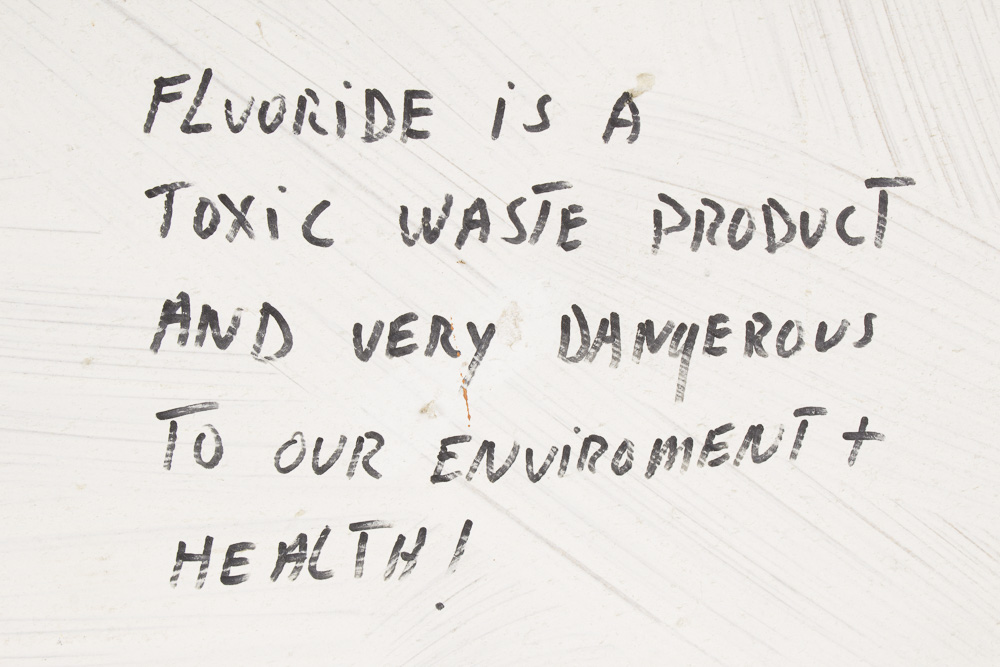 FLUORiDE iS A
TOXiC WASTE PRODUCT
AND VERY DANGEROUS
TO OUR ENViROMENT +
HEALTH!